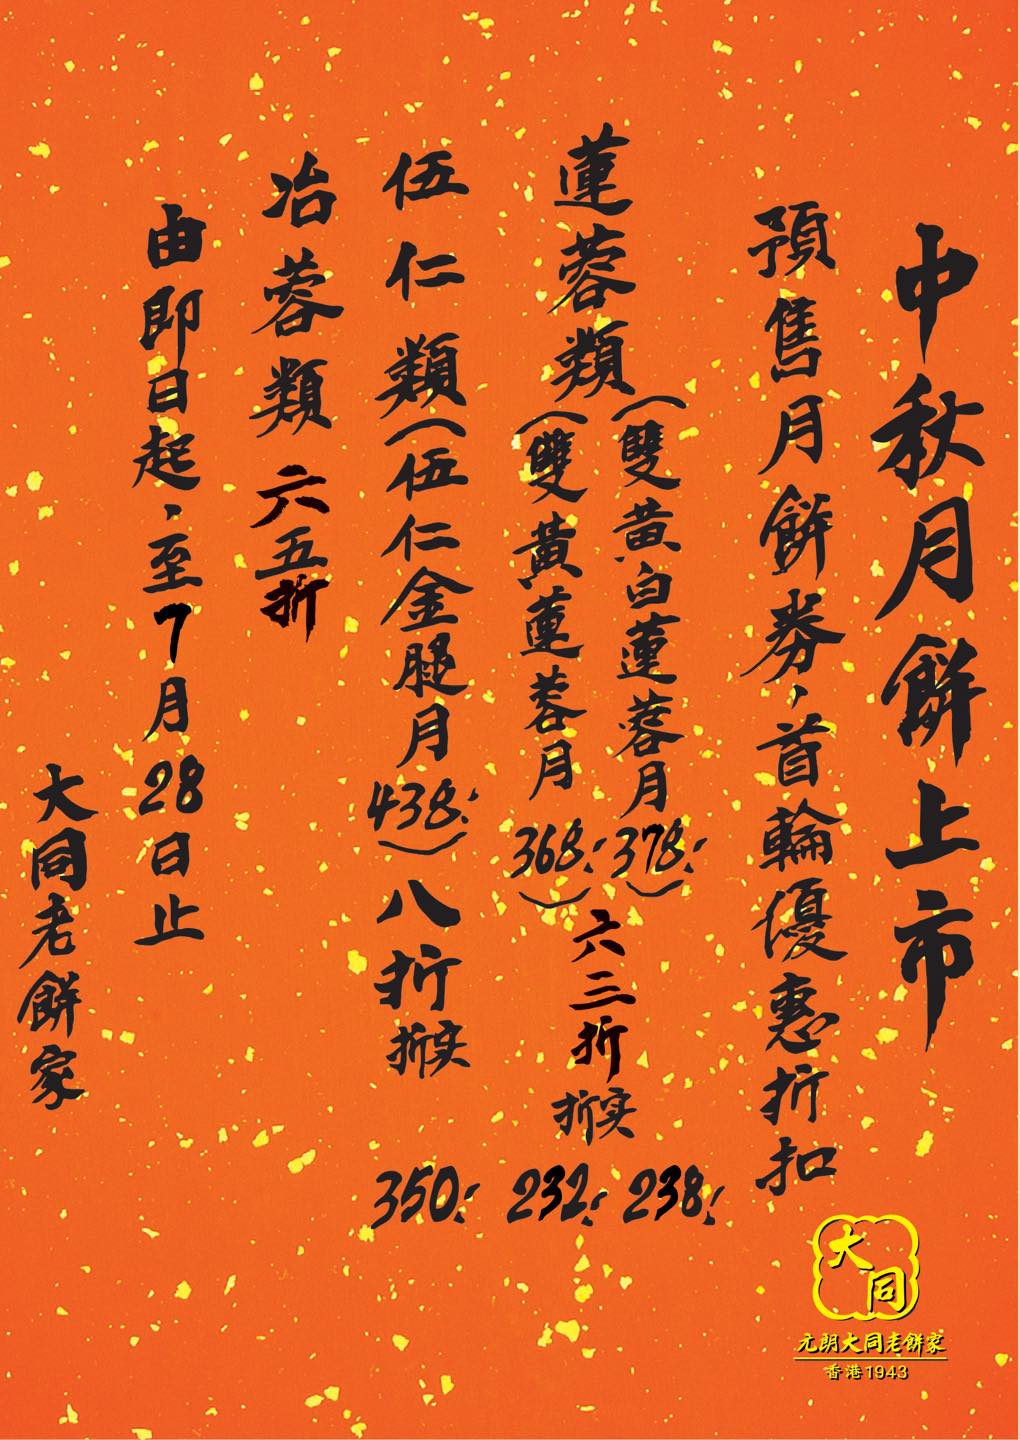 中秋月餅上市
預售月餅券，首輪優惠折扣
蓮蓉類（雙黃白蓮蓉月378.-）
（雙黃蓮蓉月368.-）
六三折
折實
238.-
232.-
伍仁類（伍仁金腿月438.-）八折
折實
350.-
冶蓉類 六五折
由即日起，至7月28日止
大同老餅家
大同
元朗大同老餅家
香港1943